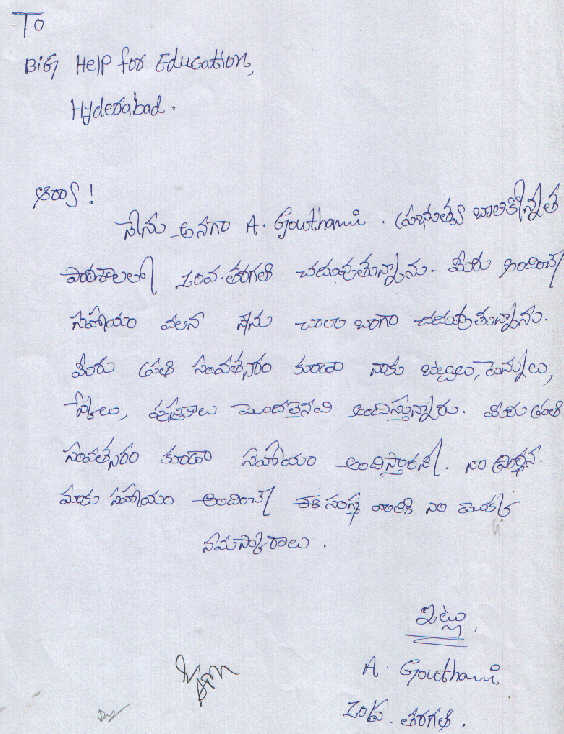 To
Big Help for Education,
Hyderabad.
ఆర్యా!
నేను అనగా A. Gowthami. ప్రభుత్వ బాలికోన్నత
పాఠశాలలో 10వ. తరగతి చదువుతున్నాను. మీరు అందించే
సహాయం వలన నేను చాలా బాగా చదువుతున్నాను.
మీరు ప్రతి సంవత్సరం కూడా నాకు బట్టలు, పెన్నులు,
పుస్తకాలు మొదలైనవి అందిస్తున్నారు. మీరు ప్రతి
సంవత్సరం కూడా సహాయం అందిస్తారని నా ప్రార్థన.
మాకు సహాయం అందించే ఈ సంస్థ వారికి నా యొక్క
నమస్కారాలు.
ఇట్లు,
A. Gowthami,
10వ. తరగతి.